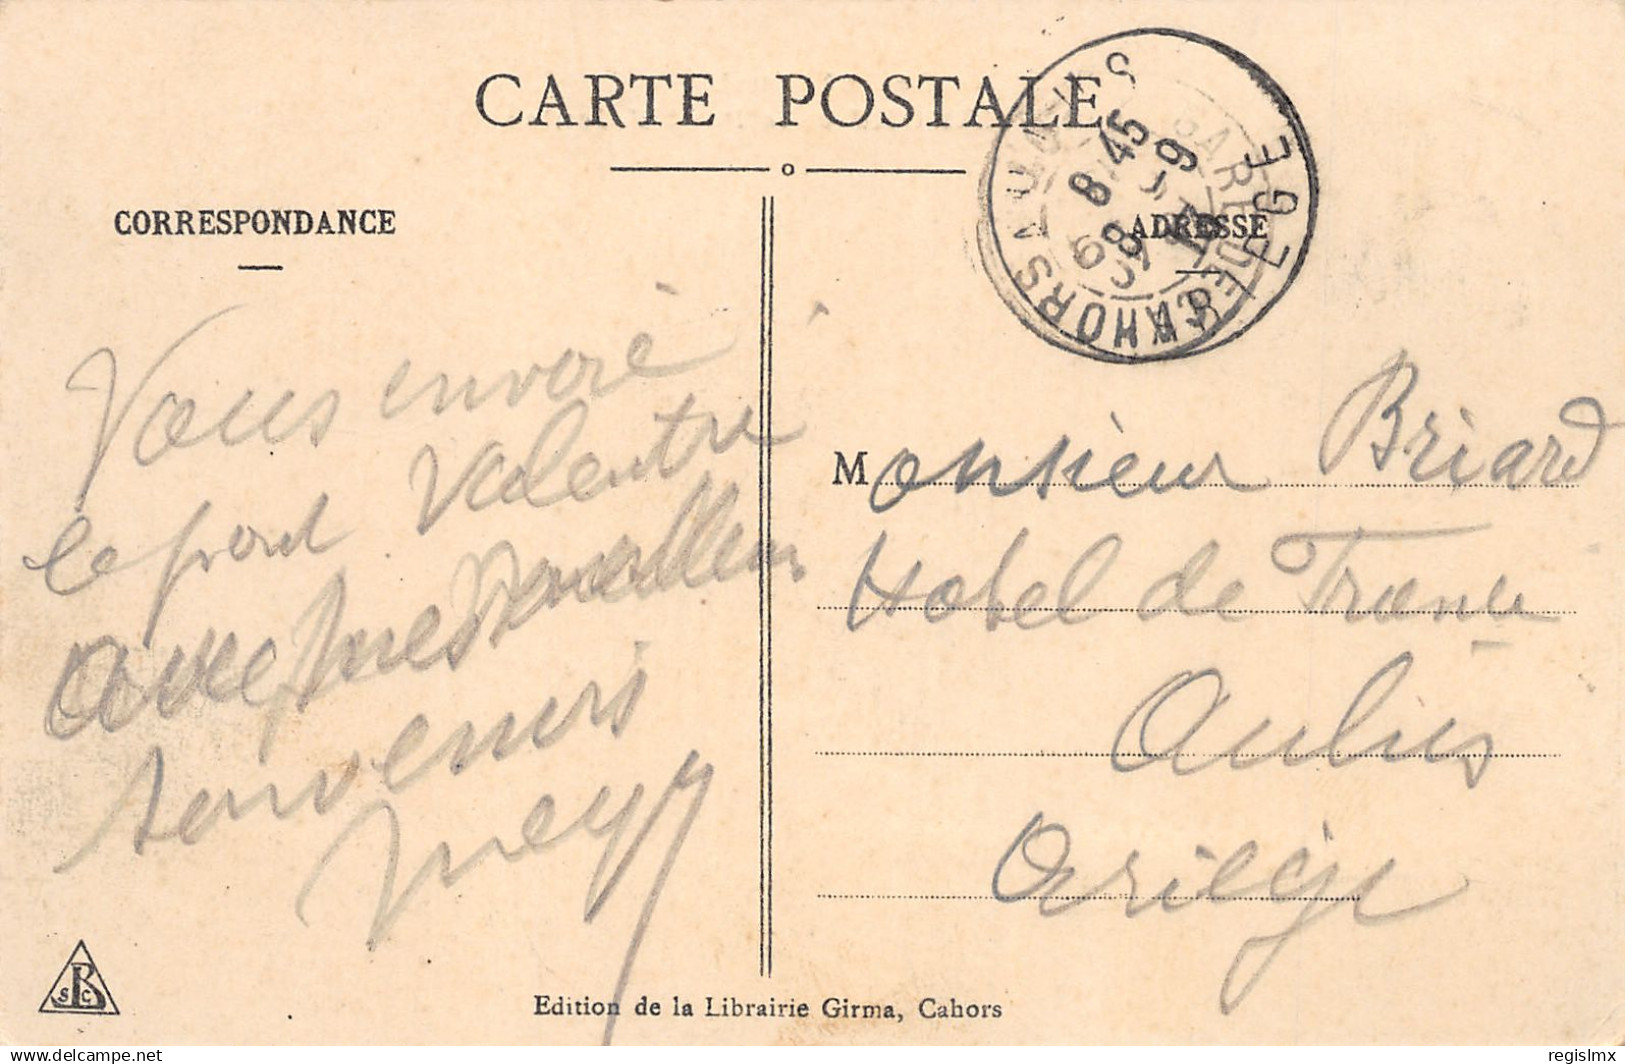 CARTE POSTALE
CORRESPONDANCE
ADRESSE
Vous envoie
le pont Valentre
avec mes meilleurs
souvenirs
Monsieur Briard
Hotel de France
Aulus
Ariège
Edition de la Librairie Girma, Cahors
SBC
CAHORS
8 45
regislmx
www.delcampe.net